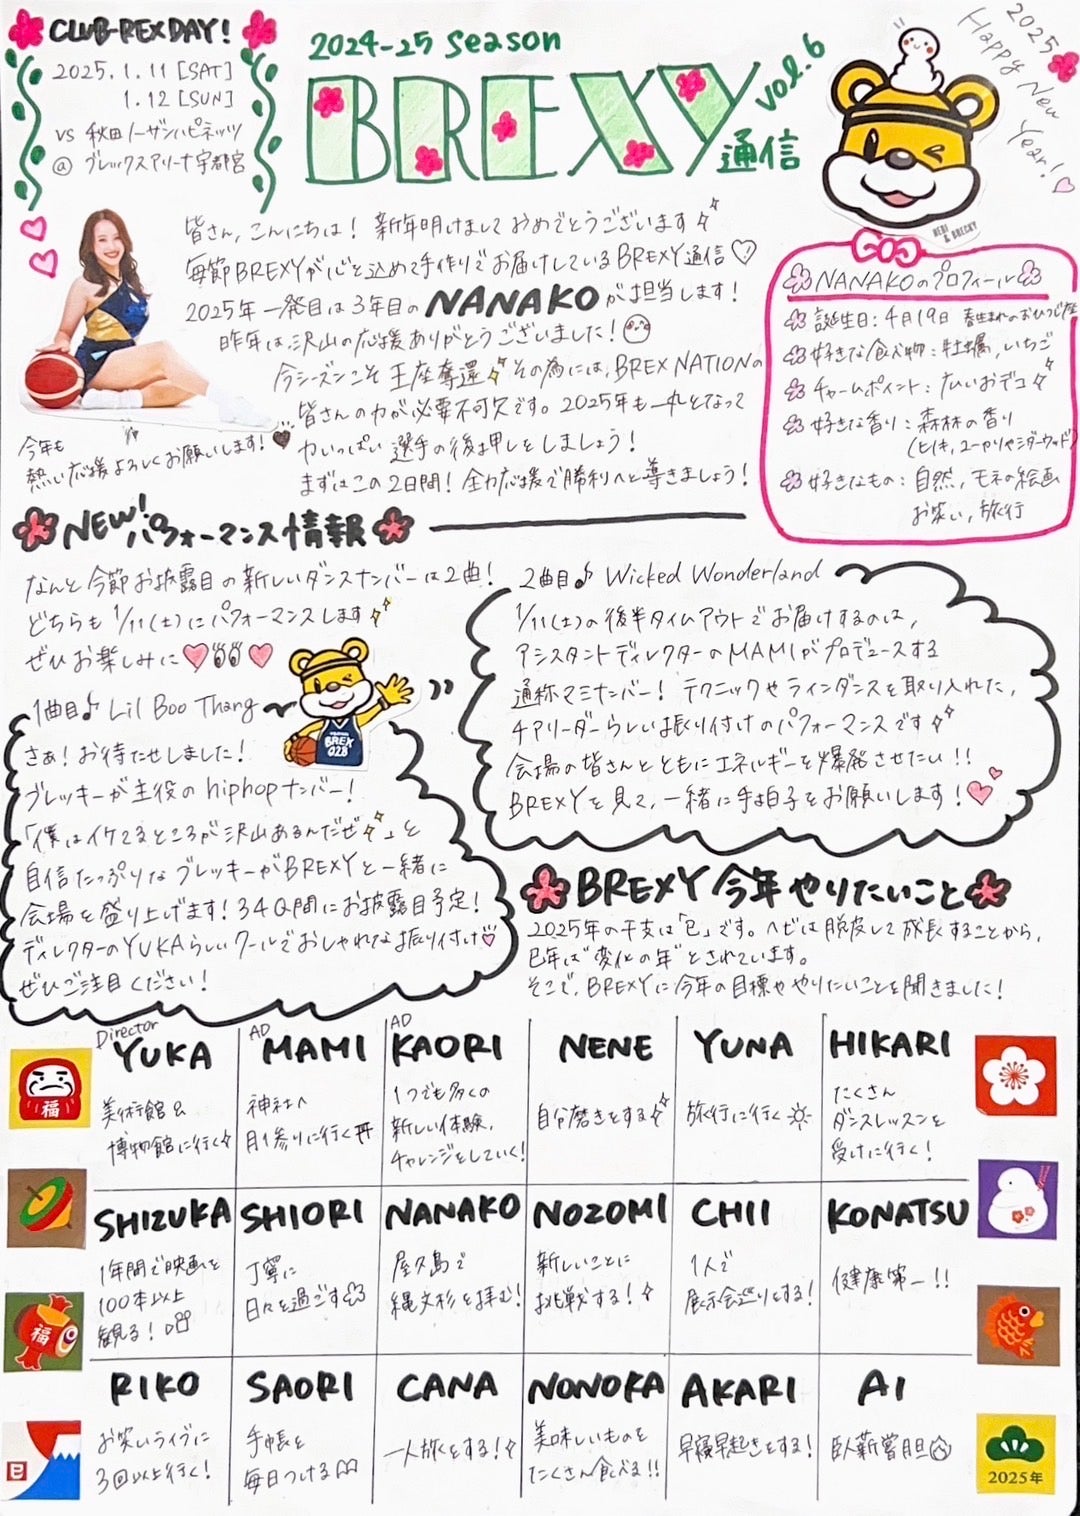 CLUB-REX DAY!
2025.1.11 [SAT]
1.12 [SUN]
vs 秋田ノーザンハピネッツ
@ ブレックスアリーナ宇都宮
2024-25 season
BREXY
通信
vol.6
2025
Happy New Year!
BEBI & BRECKY
皆さん、こんにちは! 新年明けましておめでとうございます
毎節BREXYが心を込めて手作りでお届けしているBREXY通信♡
2025年一発目は3年目のNANAKOが担当します!
昨年は沢山の応援ありがとうございました!
今シーズンこそ王座奪還 その為には、BREX NATIONの
皆さんの力が必要不可欠です。2025年も一丸となって
力いっぱい選手の後押しをしましょう!
まずはこの2日間! 全力応援で勝利へと導きましょう!
今年も
熱い応援よろしくお願いします!
NANAKOのプロフィール
誕生日:4月19日 春生まれのおひつじ座
好きな食べ物:牡蠣、いちご
チャームポイント:広いおデコ
好きな香り:森林の香り
(ヒノキ、ユーカリやシダーウッド)
好きなもの:自然、モネの絵画
お笑い、旅行
NEW! パフォーマンス情報
なんと今節お披露目の新しいダンスナンバーは2曲!
どちらも1/11(土)にパフォーマンスします
ぜひお楽しみに
1曲目♪ Lil Boo Thang
BREX
028
さぁ! お待たせしました!
ブレッキーが主役のhiphopナンバー!
「僕はイケてるところが沢山あるんだぜ」と
自信たっぷりなブレッキーがBREXYと一緒に
会場を盛り上げます! 3Q4Q間にお披露目予定!
ディレクターのYUKAらしいクールでおしゃれな振り付け♡
ぜひご注目ください!
2曲目♪ Wicked Wonderland
1/11(土)の後半タイムアウトでお届けするのは、
アシスタントディレクターのMAMIがプロデュースする
通称マミナンバー! テクニックやラインダンスを取り入れた、
チアリーダーらしい振り付けのパフォーマンスです
会場の皆さんとともにエネルギーを爆発させたい!!
BREXYを見て、一緒に手拍子をお願いします!
BREXY今年やりたいこと
2025年の干支は「巳」です。ヘビは脱皮して成長することから、
巳年は"変化の年"とされています。
そこで、BREXYに今年の目標ややりたいことを聞きました!
Director
YUKA
美術館&
博物館に行く
AD
MAMI
神社へ
月1参りに行く
AD
KAORI
1つでも多くの
新しい体験、
チャレンジをしていく!
NENE
自分磨きをする
YUNA
旅行に行く
HIKARI
たくさん
ダンスレッスンを
受けに行く!
SHIZUKA
1年間で映画を
100本以上
観る!
SHIORI
丁寧に
日々を過ごす
NANAKO
屋久島で
縄文杉を拝む!
NOZOMI
新しいことに
挑戦する!
CHII
1人で
展示会巡りをする!
KONATSU
健康第一!!
RIKO
お笑いライブに
3回以上行く!
SAORI
手帳を
毎日つける
CANA
一人旅をする!
NONOKA
美味しいものを
たくさん食べる!!
AKARI
早寝早起きをする!
AI
臥薪嘗胆
福
福
巳
2025年